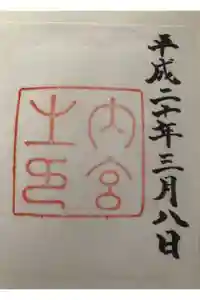 平成二十年三月八日
内宮
之印